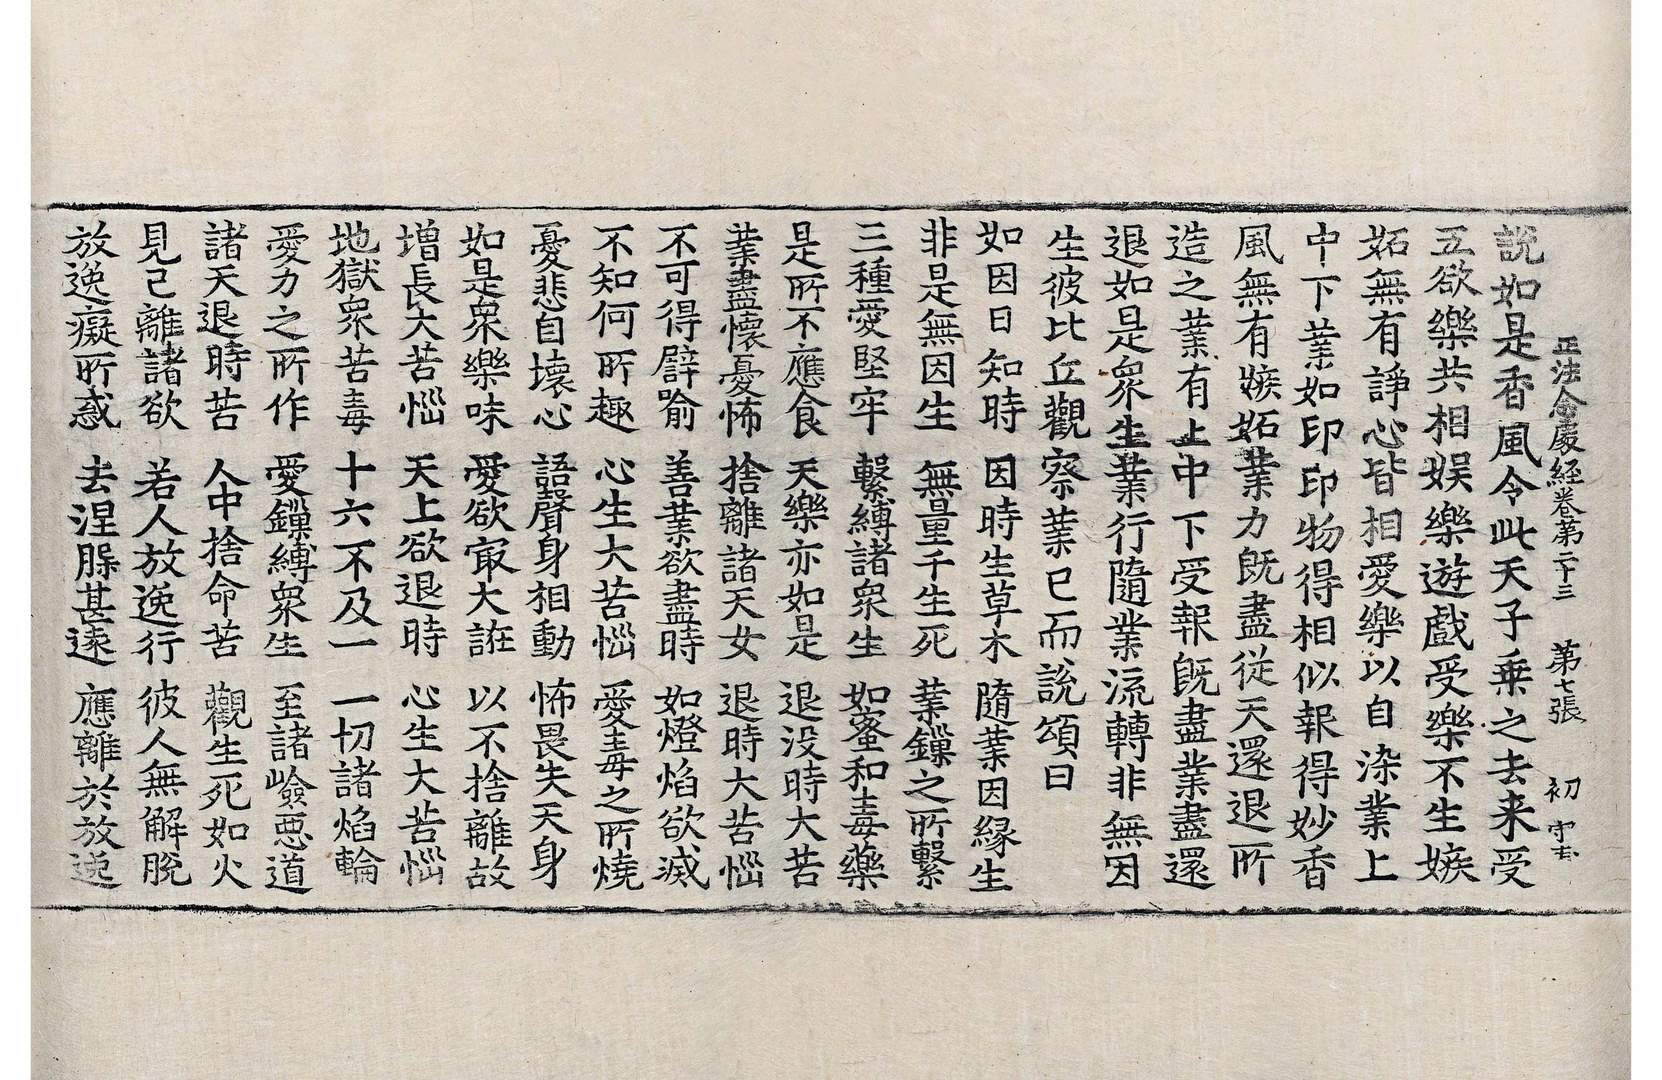 正法念處經卷第二十三　第七張　初　守去
說如是香風令此天子乗之去来受
五欲樂共相娱樂遊戲受樂不生嫉
妬無有諍心皆相愛樂以自染業上
中下業如印印物得相似報得妙香
風無有嫉妬業力既盡從天還退所
造之業有上中下受報既盡業盡還
退如是衆生業行隨業流轉非無因
生彼比丘觀察業已而說頌曰
如因日知時　因時生草木　隨業因縁生
非是無因生　無量千生死　業鏁之所繫
三種愛堅牢　繫縛諸衆生　如蜜和毒藥
是所不應食　天樂亦如是　退没時大苦
業盡懷憂怖　捨離諸天女　退時大苦惱
不可得譬喻　善業欲盡時　如燈焰欲滅
不知何所趣　心生大苦惱　愛毒之所燒
憂悲自壞心　語聲身相動　怖畏失天身
如是衆樂味　愛欲㝡大誑　以不捨離故
増長大苦惱　天上欲退時　心生大苦惱
地獄衆苦毒　十六不及一　一切諸焰輪
愛力之所作　愛鏁縛衆生　至諸嶮惡道
諸天退時苦　人中捨命苦　觀生死如火
見已離諸欲　若人放逸行　彼人無解脫
放逸癡所惑　去涅槃甚遠　應離於放逸